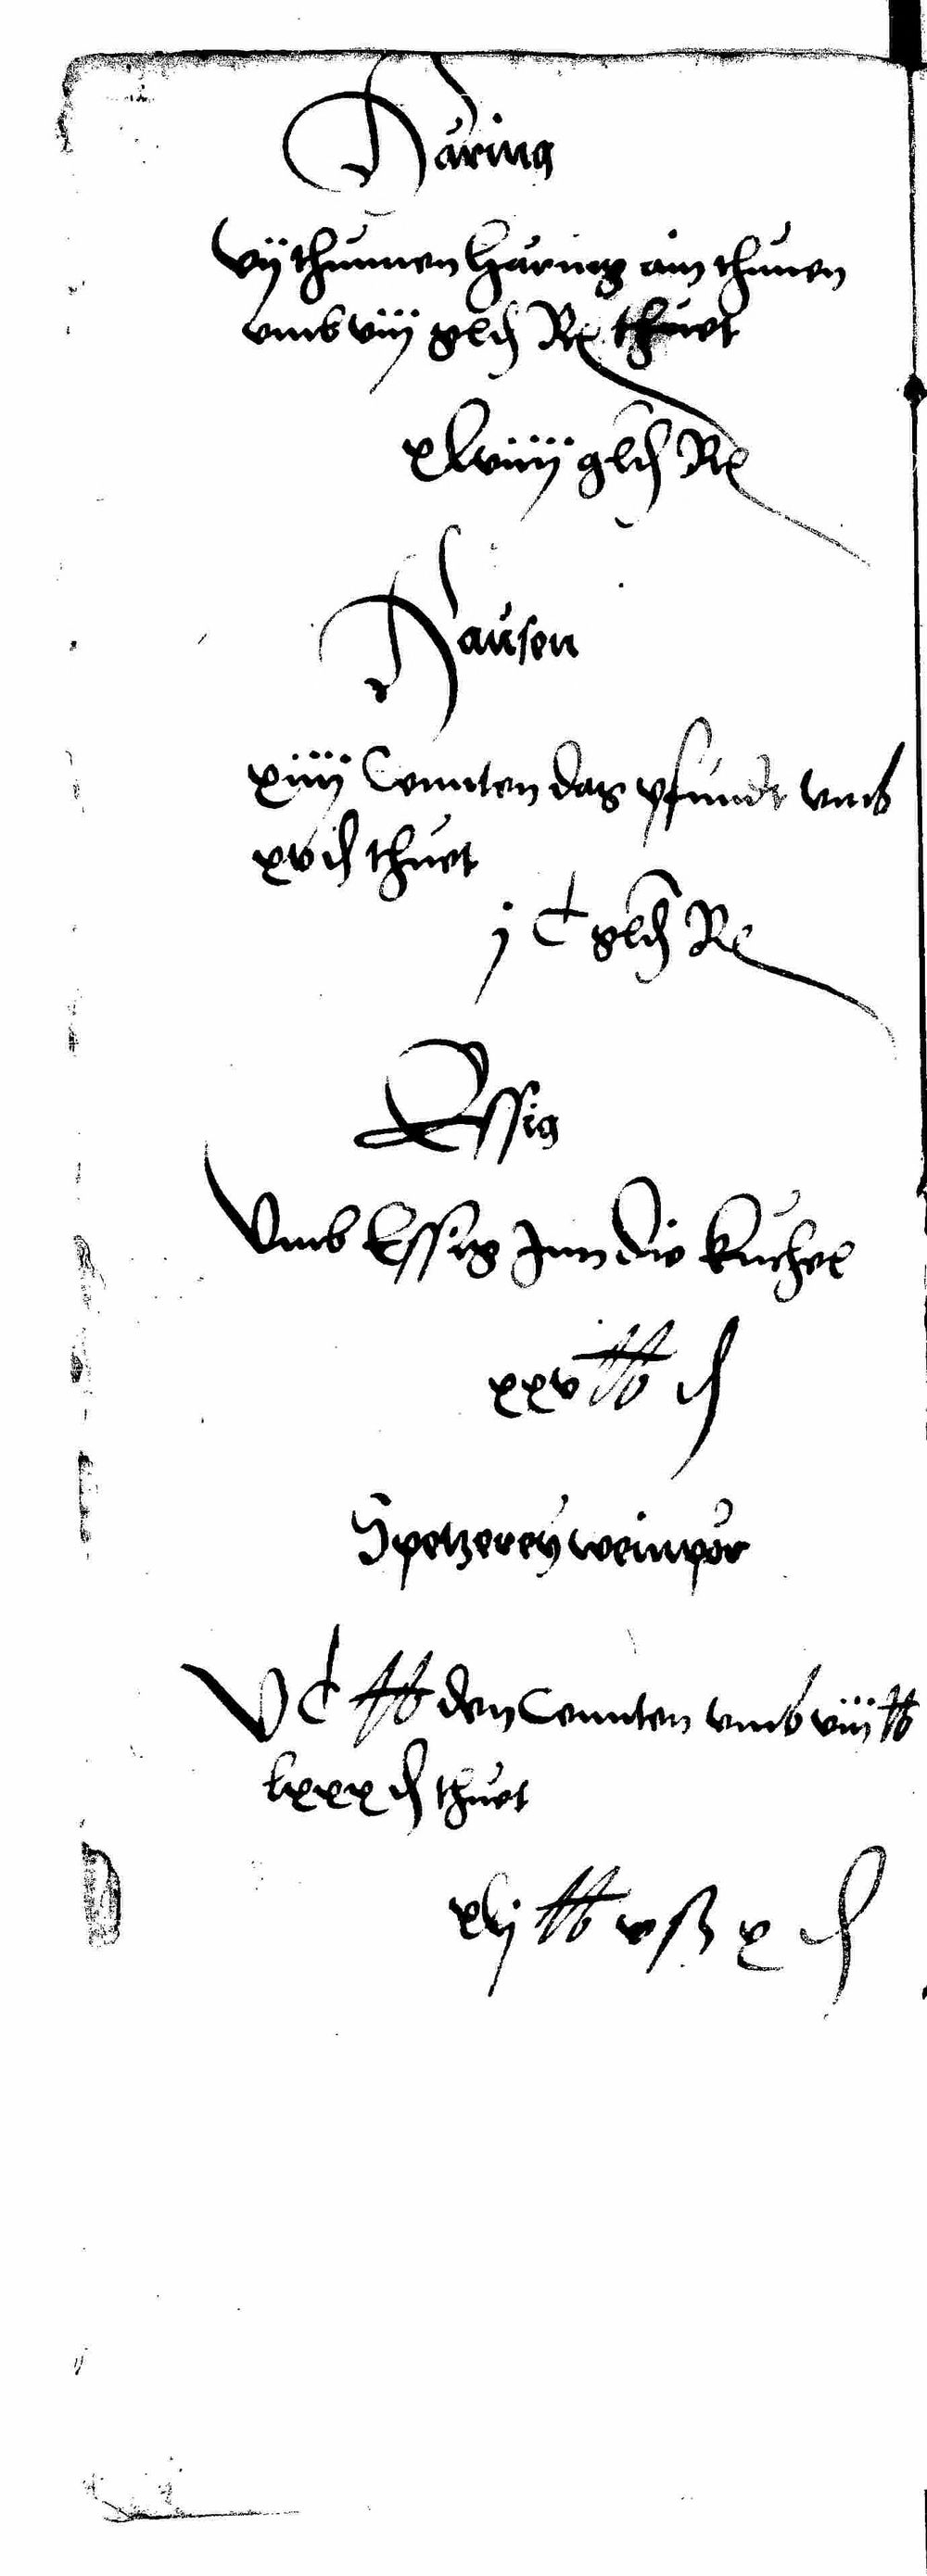 Häring
vij thunnen Häring ain thunen
vmb viij gld Rh thuet
xlviiij gld Rh
Hausen
xiiij Centten das pfundt vmb
xv d thuet
j C gld Rh
Essig
Vmb Essig Inn die kuchel
xxv lb d
Spetzerey weinper
V C lb den Centten vmb viij lb
lxxx d thuet
xlj lb v ß x d